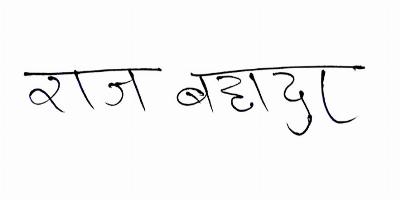 राज बहादुर